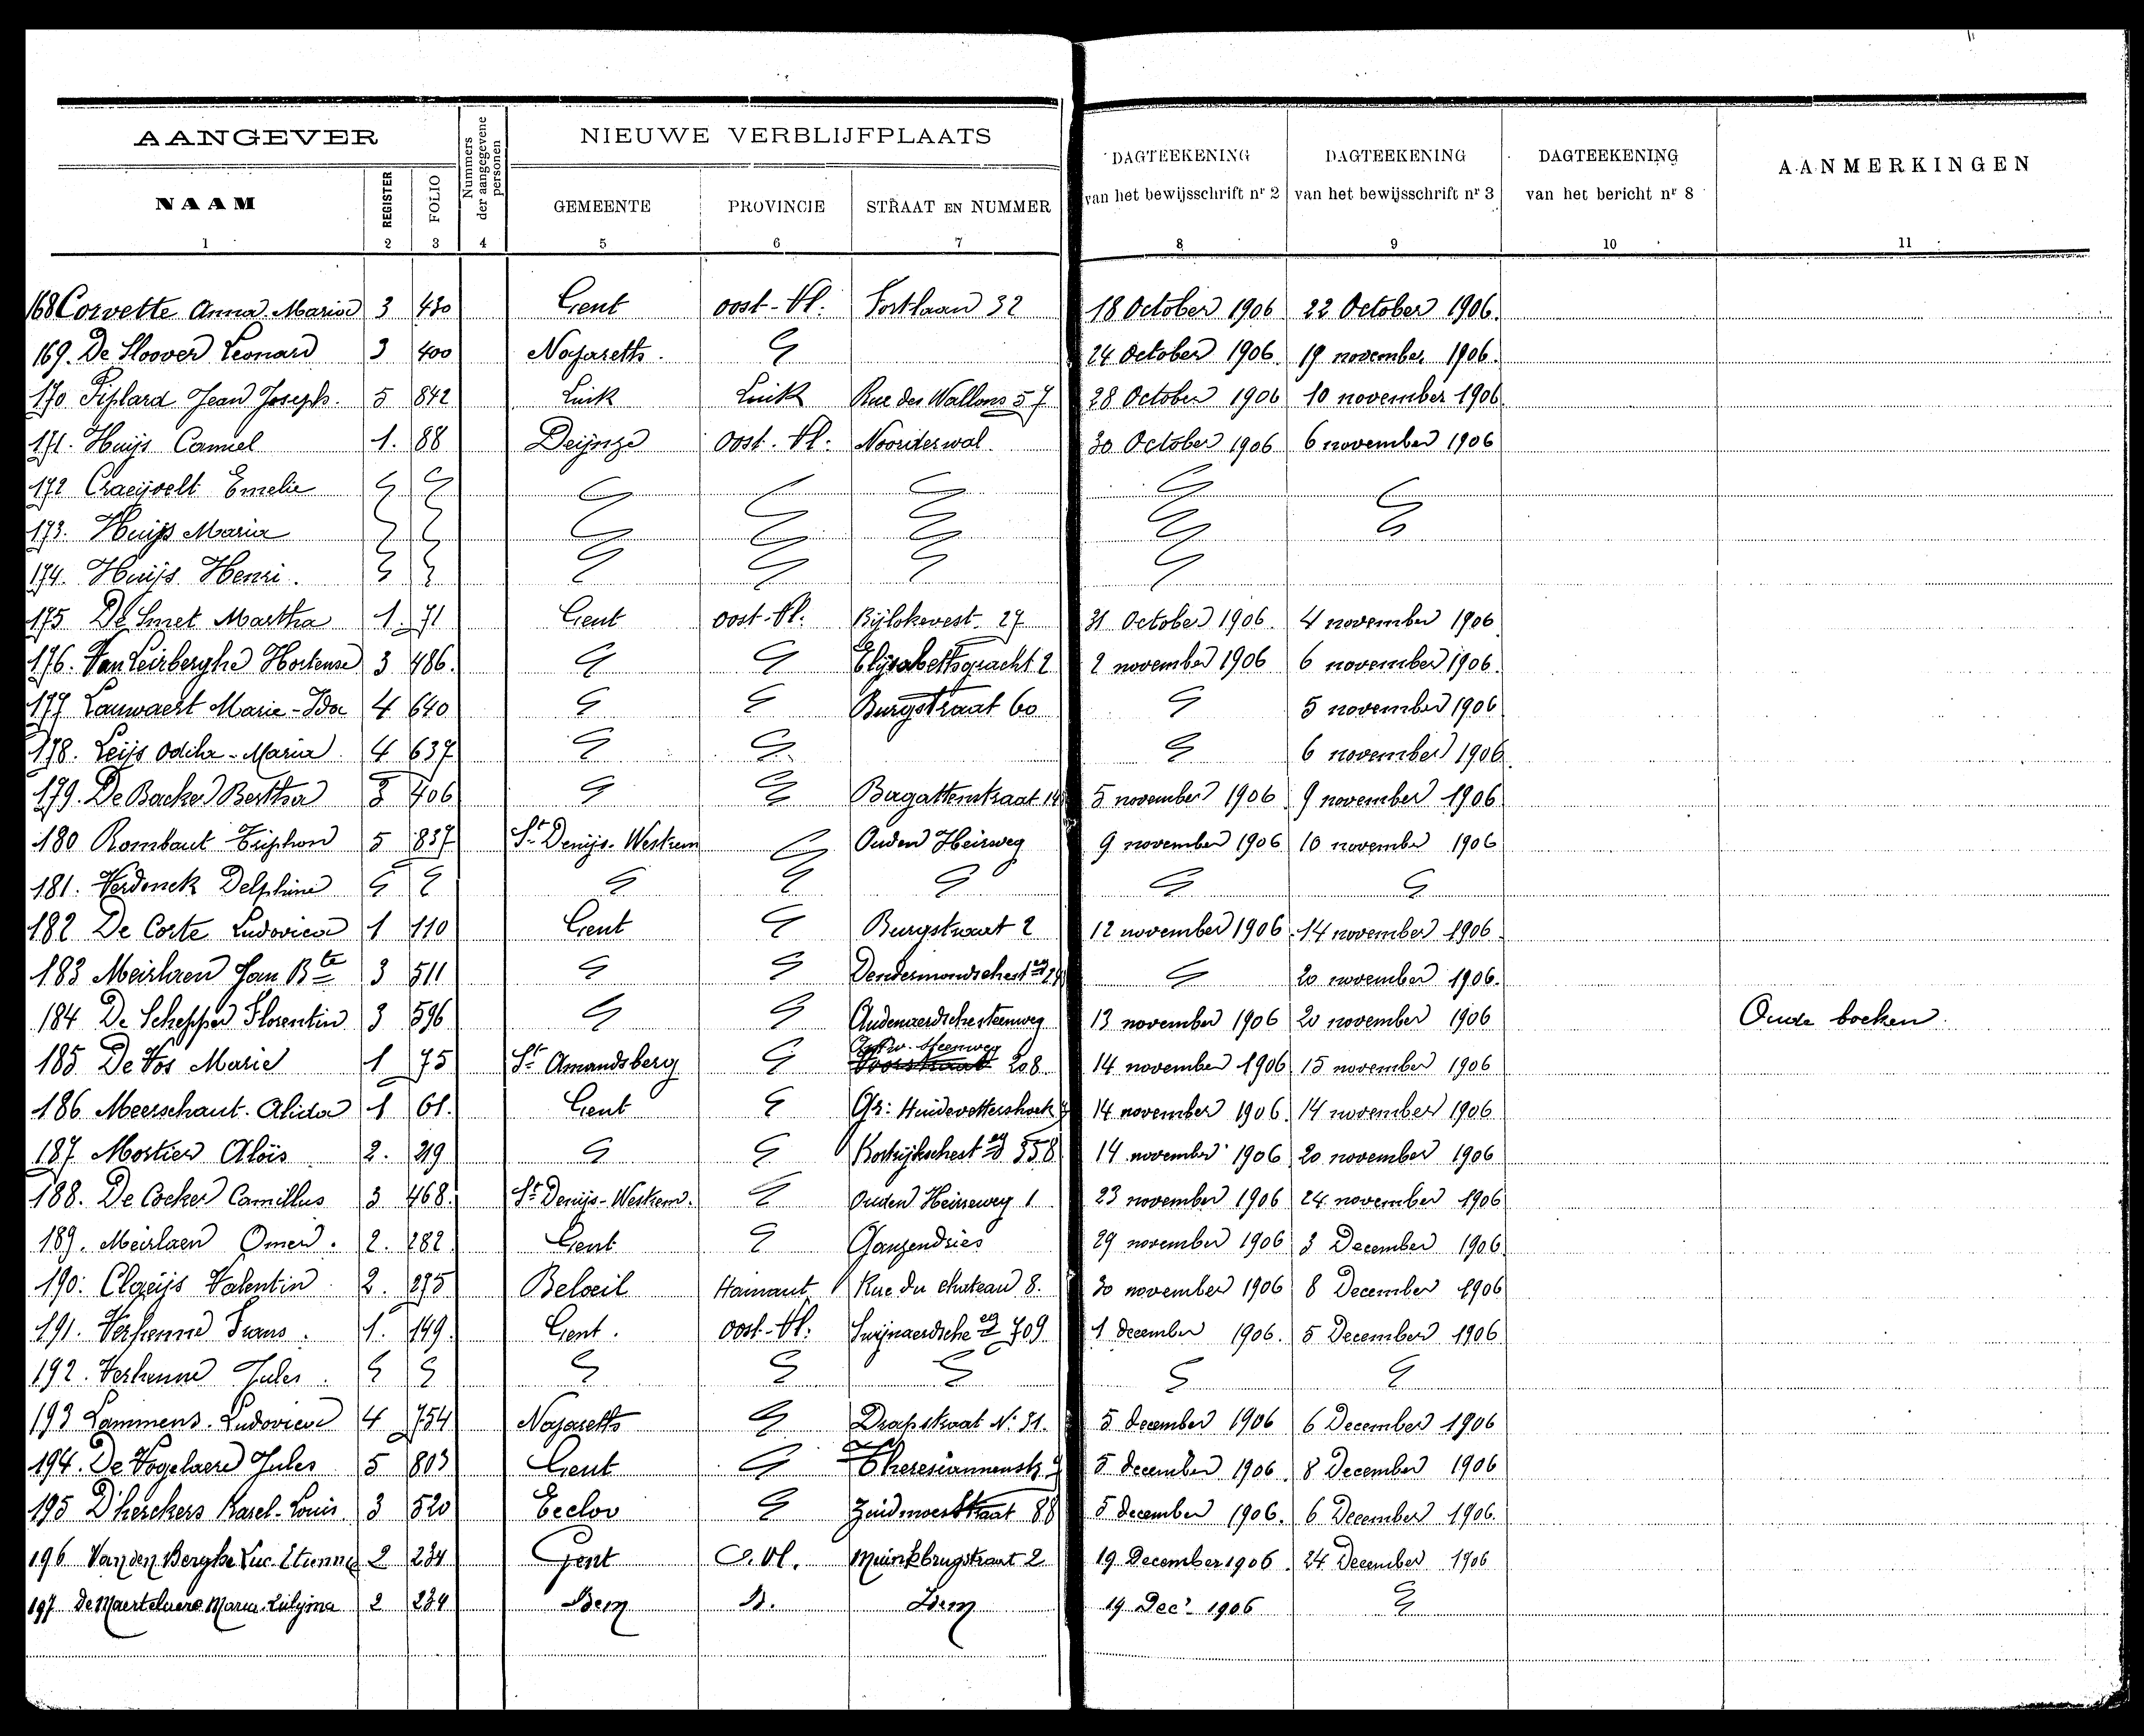 AANGEVER
Nummers der aangegevene personen
NIEUWE VERBLIJFPLAATS
DAGTEEKENING van het bewijsschrift nr 2
DAGTEEKENING van het bewijsschrift nr 3
DAGTEEKENING van het bericht nr 8
AANMERKINGEN
NAAM REGISTER FOLIO GEMEENTE PROVINCIE STRAAT EN NUMMER
1 2 3 4 5 6 7 8 9 10 11
168 Corvette Anna Maria 3 430 Gent oost-Vl. Fortlaan 32 18 October 1906 22 October 1906.
169. De Sloover Leonard 3 400 Nazareth. 24 October 1906. 19 november 1906.
170 Piplard Jean Joseph. 5 842 Luik Luik Rue des Wallons 57 28 October 1906 10 november 1906.
171. Huijs Camiel 1. 88 Deijnze Oost. Vl. Noorderwal. 30 October 1906 6 november 1906
172 Craeijvelt Emelie
173. Huijs Maria
174. Huijs Henri.
175 De Smet Martha 1. 71 Gent oost-Vl. Bijlokevest 27 31 October 1906. 4 november 1906
176. Van Leirberghe Hortense 3 486. Elijsabethgracht 2 2 november 1906 6 november 1906.
177 Lauwaert Marie-Ida 4 640 Burgstraat 60 5 november 1906
178. Leijs Odila-Maria 4 637 6 november 1906
179. De Backer Bertha 3 406 Bagattenstraat 5 november 1906 9 november 1906
180 Rombaut Triphon 5 837 St Denijs-Westrem Ouden Heirweg 9 november 1906 10 november 1906
181. Verdonck Delphine
182 De Corte Ludovica 1 110 Gent Burgstraat 2 12 november 1906 14 november 1906.
183 Meirlaen Jan Bte 3 511 Dendermondschest eg 20 november 1906.
184 De Schepper Florentin 3 596 Audenaerdsche steenweg 13 november 1906 20 november 1906 Oude boeken.
185 De Vos Marie 1 75 St Amandsberg steenweg
Voorstraat 208 14 november 1906 15 november 1906
186 Meerschaut. Alida 1 61. Gent Gr: Huidevettershoek 14 november 1906. 14 november 1906
187 Mortier Aloïs 2. 219 Kortrijkschest eg 558 14 november 1906 20 november 1906
188. De Cocker Camillus 3 468. St Denijs-Westrem. Ouden Heirweg 1 23 november 1906 24 november 1906
189. Meirlaen Omer. 2. 282. Gent Ganzendries 29 november 1906 3 December 1906
190. Claeijs Valentin 2. 275 Beloeil Hainaut Rue du chateau 8. 30 november 1906 8 December 1906
191. Verhenne Frans. 1. 149. Gent. oost-Vl. Swijnaerdsche eg 709 1 december 1906. 5 December 1906
192. Verhenne Jules.
193 Lammens. Ludovica 4 754 Nazareth Drapstraat No 31. 5 december 1906 6 December 1906
194. De Vogelaere Jules 5 803 Gent Theresiannenstr. 5 december 1906. 8 December 1906
195 D'herckers Karel-Louis 3 520 Eecloo Zuidmoerstraat 88 5 december 1906. 6 December 1906.
196 Van den Berghe Luc. Etienne 2 234 Gent O. Vl. Muinkbrugstraat 2 19 December 1906. 24 December 1906
197 De Maertelaere Maria 2 234 Idem Idem 19 Decr 1906